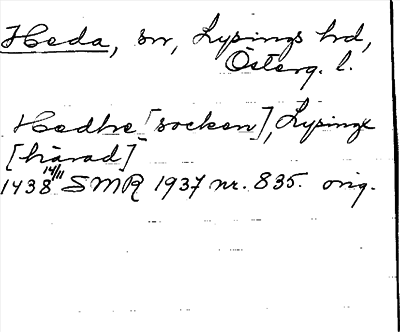 Heda, sn, Lysings hd,
Österg. l.
Hedhe [socken], Lysinge
[härad]
1438 14/11 SMR 1937 nr. 835. orig.